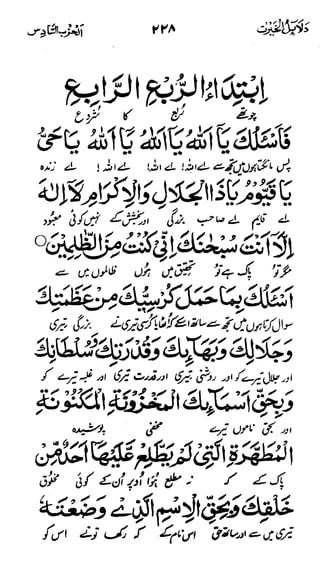 دلائل الخيرت ٢٢٨ الحزب السّادس
اِبْتِدَاءُ الرُّبْعِ الرَّابِعِ
چوتھے ربع کا شروع
فَاَسْئَلُكَ يَآ اَللهُ يَآ اَللهُ يَآ اَللهُ يَا حَيُّ
پس مانگتا ہوں میں تجھ سے اے اللہ! اے اللہ! اے اللہ! اے زندہ
يَا قَيُّوْمُ يَاذَا الْجَلَالِ وَالْاِكْرَامِ لَآ اِلٰهَ
اے قایم اے صاحب بزرگی اور بخشش کے نہیں کوئی معبود
اِلَّآ اَنْتَ سُبْحٰنَكَ اِنِّيْ كُنْتُ مِنَ الظّٰلِمِيْنَ
مگر تو پاک ہے تو تحقیق میں ہوں ظالموں میں سے
اَسْئَلُكَ بِمَا حَمَلَ كُرْسِيُّكَ مِنْ عَظَمَتِكَ
سوال کرتا ہوں میں تجھ سے ساتھ اسکے کہ اٹھایا کرسی تیری نے بزرگی تیری
وَجَلَالِكَ وَبَهَآئِكَ وَقُدْرَتِكَ وَسُلْطَانِكَ
اور جلال تیرے کو اور روشنی تیری اور قدرت تیری اور غلبہ تیرے کو
وَبِحَقِّ اَسْمَآئِكَ الْمَخْزُوْنَةِ الْمَكْنُوْنَةِ
اور بحق ناموں تیرے مخفی پوشیدہ
الْمُطَهَّرَةِ الَّتِيْ لَمْ يَطَّلِعْ عَلَيْهَآ اَحَدٌ مِّنْ
پاک کے کہ نہ مطلع ہوا اوپر اُن کے کوئی مخلوق
خَلْقِكَ وَبِحَقِّ الْاِسْمِ الَّذِيْ وَضَعْتَهٗ
تیری میں سے اور ساتھ حق اس نام کے کہ رکھا تونے اس کو